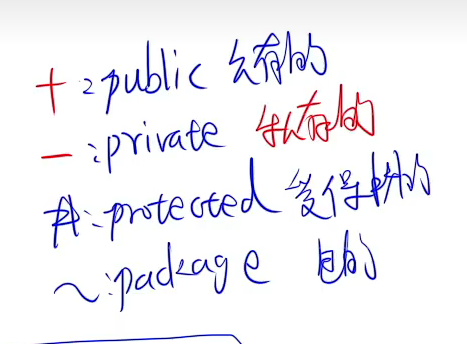 +:public 公有的
-:private 私有的
#:protected 受保护的
~:package 包的